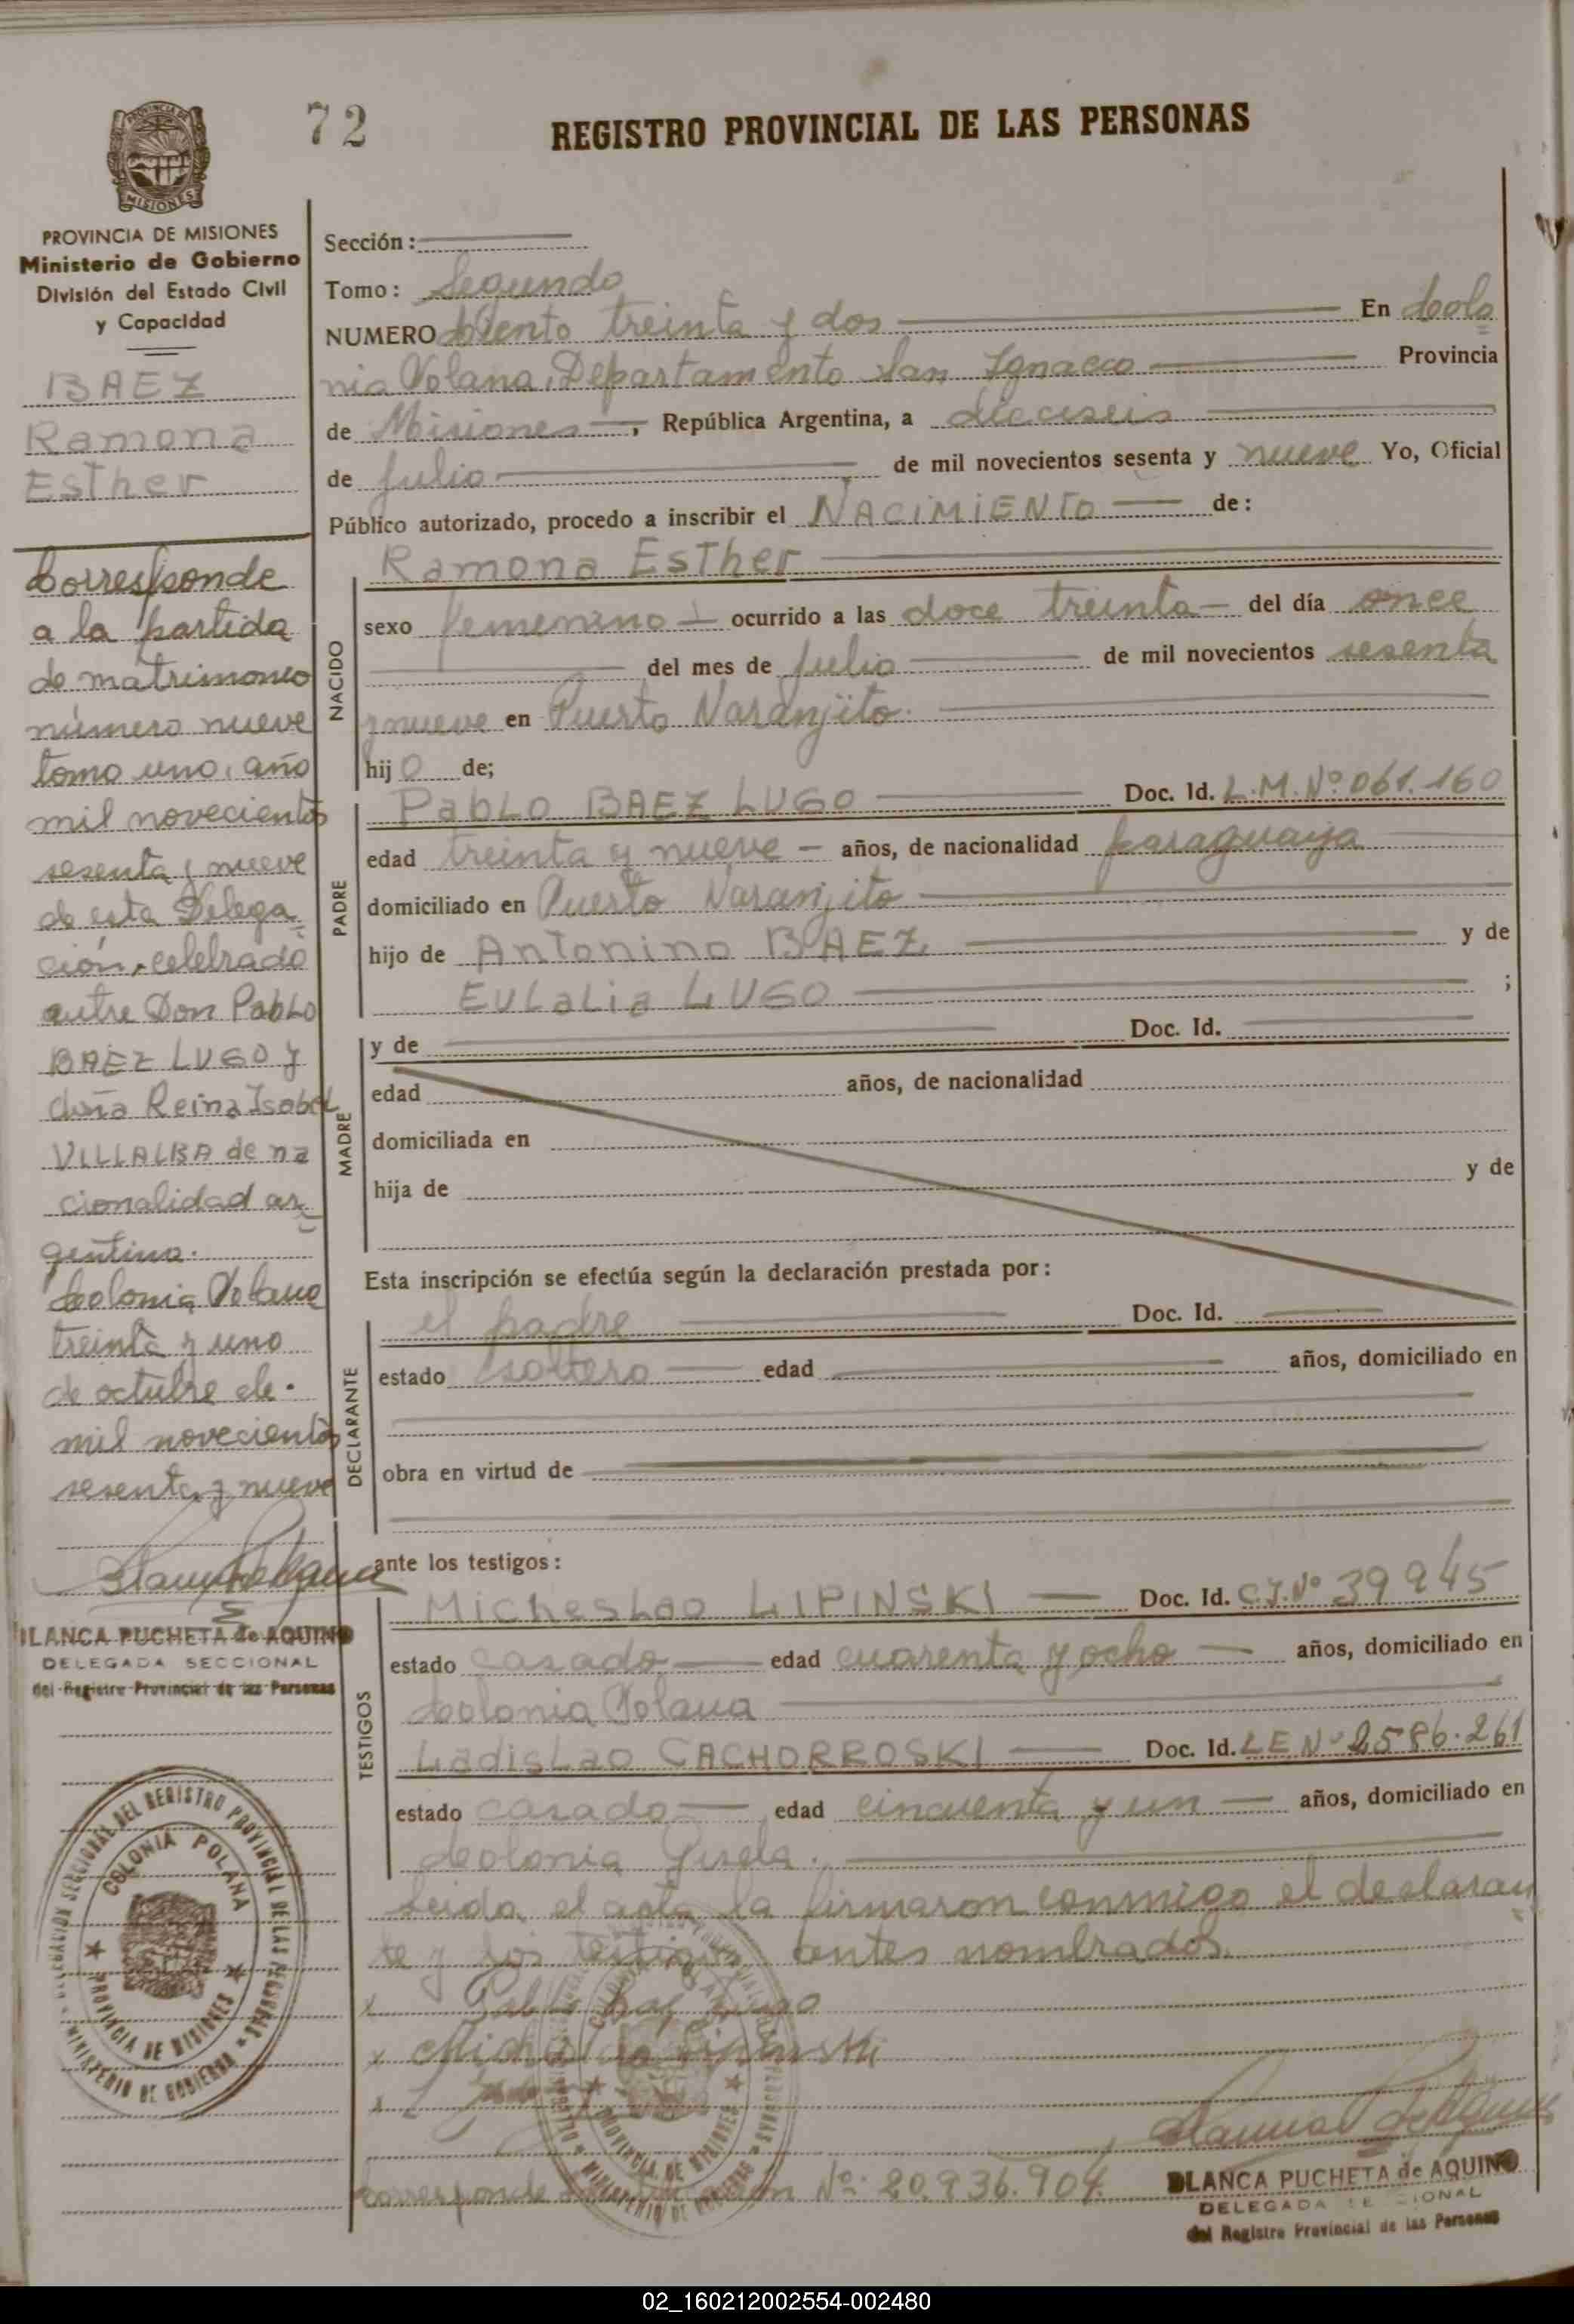 72
REGISTRO PROVINCIAL DE LAS PERSONAS
MISIONES
PROVINCIA DE MISIONES
Ministerio de Gobierno
División del Estado Civil
y Capacidad
BAEZ
Ramona
Esther
Corresponde
a la partida
de matrimonio
número nueve
tomo uno, año
mil novecientos
sesenta y nueve
de esta Delega
ción, celebrado
entre Don Pablo
BAEZ LUGO y
doña Reina Isabel
VILLALBA de na
cionalidad ar
gentina.
Colonia Polana
treinta y uno
de octubre de
mil novecientos
sesenta y nueve
BLANCA PUCHETA de AQUINO
DELEGADA SECCIONAL
del Registro Provincial de las Personas
DELEGACION SECCIONAL DEL REGISTRO PROVINCIAL DE LAS PERSONAS
COLONIA POLANA
PROVINCIA DE MISIONES
MINISTERIO DE GOBIERNO
Sección:
Tomo: Segundo
NUMERO Ciento treinta y dos En Colo
nia Polana, Departamento San Ignacio Provincia
de Misiones, República Argentina, a dieciseis
de Julio de mil novecientos sesenta y nueve Yo, Oficial
Público autorizado, procedo a inscribir el NACIMIENTO de:
NACIDO
Ramona Esther
sexo femenino ocurrido a las doce treinta del día once
del mes de Julio de mil novecientos sesenta
y nueve en Puerto Naranjito.
hijo de;
PADRE
Pablo BAEZ LUGO Doc. Id. L.M.Nº 061.160
edad treinta y nueve años, de nacionalidad paraguaya
domiciliado en Puerto Naranjito
hijo de Antonino BAEZ y de
Eulalia LUGO ;
MADRE
y de Doc. Id.
edad años, de nacionalidad
domiciliada en
hija de y de
Esta inscripción se efectúa según la declaración prestada por:
DECLARANTE
el padre Doc. Id.
estado soltero edad años, domiciliado en
obra en virtud de
ante los testigos:
TESTIGOS
Micheslao LIPINSKI Doc. Id. C.I.Nº 39945
estado casado edad cuarenta y ocho años, domiciliado en
Colonia Polana
Ladislao CACHORROSKI Doc. Id. L E Nº 2586.261
estado casado edad cincuenta y un años, domiciliado en
Colonia Gisela.
Leida el acta la firmaron conmigo el declaran
te y los testigos antes nombrados.
x Pablo Baez Lugo
x Lipinski
x
Corresponde Nº: 20.936.904.
BLANCA PUCHETA de AQUINO
DELEGADA
del Registro Provincial de las Personas
02_160212002554-002480